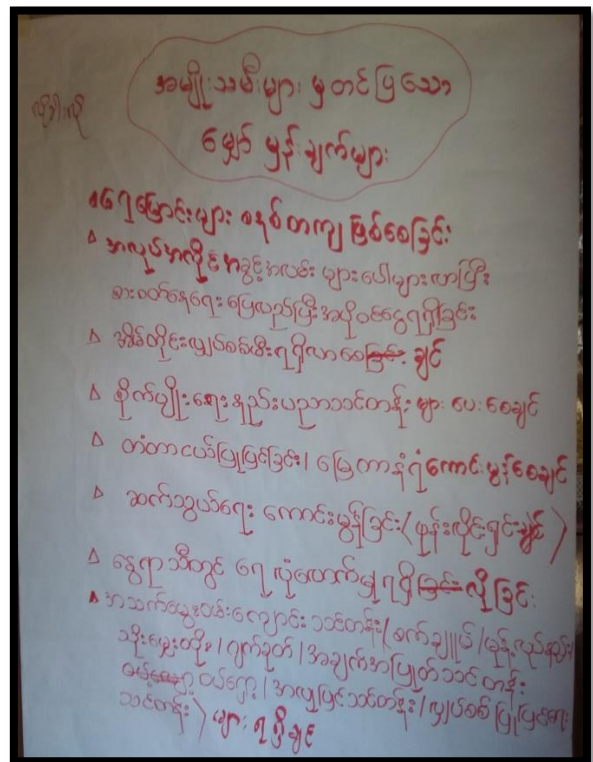 အမျိုးသမီးများ မှတင်ပြသော
မျှော်မှန်းချက်များ
ရေမြောင်းများ စနစ်တကျ ဖြစ်စေခြင်း
အလုပ်အကိုင်အခွင့်အလမ်း များပေါများလာပြီး
စားဝတ်နေရေးပြေလည်ပြီးအပိုဝင်ငွေရရှိခြင်း
အိမ်တိုင်းလျှပ်စစ်မီးရရှိလာစေခြင်း ချင်
စိုက်ပျိုးရေးနည်းပညာသင်တန်းများ ပေးစေချင်
တံတားငယ်ပြုပြင်ခြင်း၊ မြေထာနံရံကောင်းမွန်စေချင်
ဆက်သွယ်ရေး ကောင်းမွန်ခြင်း (ဖုန်းလိုင်းရှင်းချင်)
နွေရာသီတွင် ရေလုံလောက်မှုရရှိခြင်း လိုခြင်း
အသက်မွေးဝမ်းကျောင်းသင်တန်း (စက်ချုပ်/မုန့်လုပ်နည်း/
သိုးမွှေးထိုး/ဂျက်ခုတ်/အချက်အပြုတ်သင်တန်း
ဝပ်ရှော့/အလှပြင်သင်တန်း/လျှပ်စစ်ပြုပြင်ရေး
သင်တန်း) များ ရရှိချင်